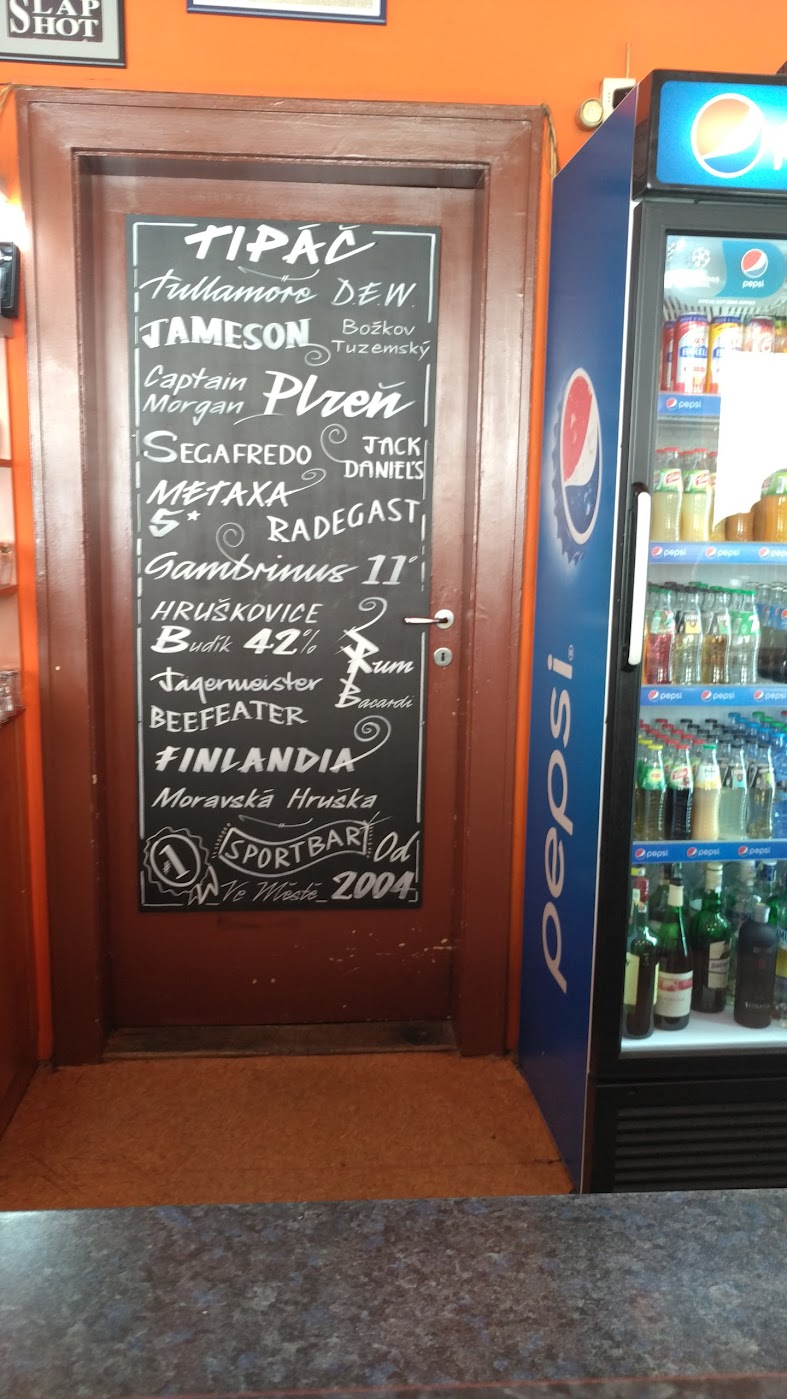 SLAP
SHOT
TIPÁČ
Tullamore D.E.W.
JAMESON
Božkov
Tuzemský
Captain
Morgan
Plzeň
SEGAFREDO
JACK
DANIEL'S
METAXA
5*
RADEGAST
Gambrinus 11°
HRUŠKOVICE
Budík 42%
Rum
Bacardi
Jägermeister
BEEFEATER
FINLANDIA
Moravská Hruška
#1
SPORTBAR
Od
Ve Městě
2004
pepsi
pepsi
pepsi
pepsi pepsi pepsi
pepsi pepsi pepsi
pepsi pepsi pepsi